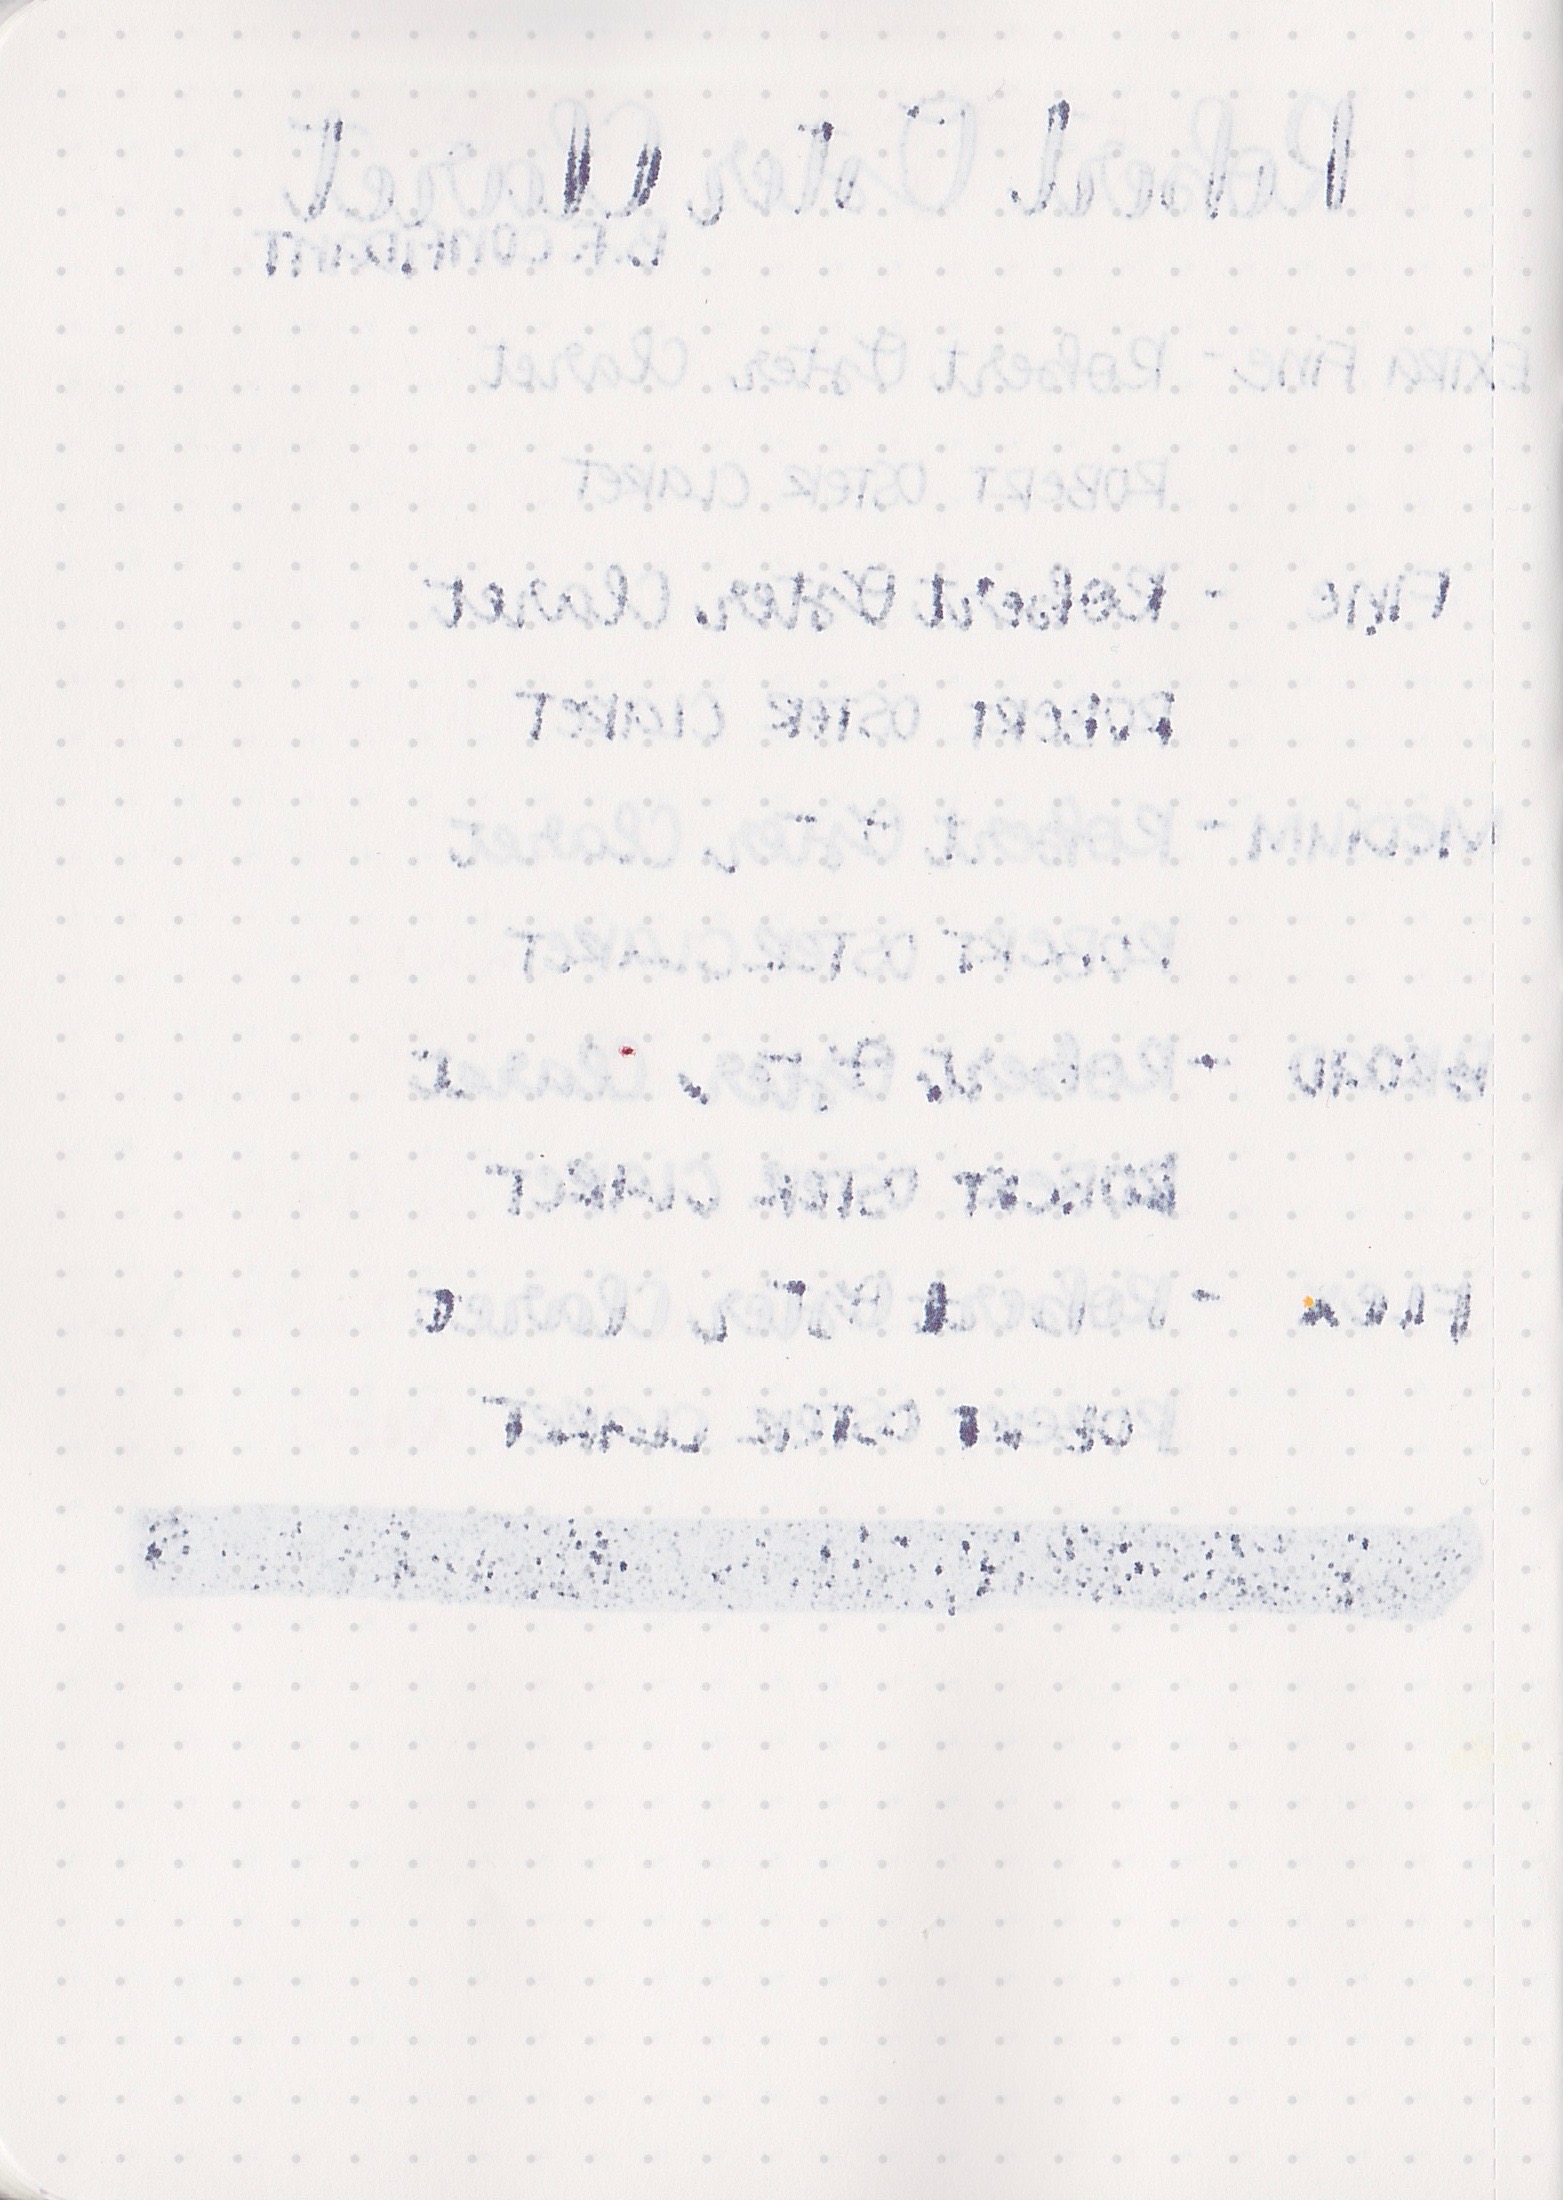 Robert Oster Claret
B.F. CONFIDANT
Extra Fine - Robert Oster Claret
ROBERT OSTER CLARET
Fine - Robert Oster Claret
ROBERT OSTER CLARET
Medium - Robert Oster Claret
ROBERT OSTER CLARET
BROAD - Robert Oster Claret
ROBERT OSTER CLARET
Flex - Robert Oster Claret
ROBERT OSTER CLARET